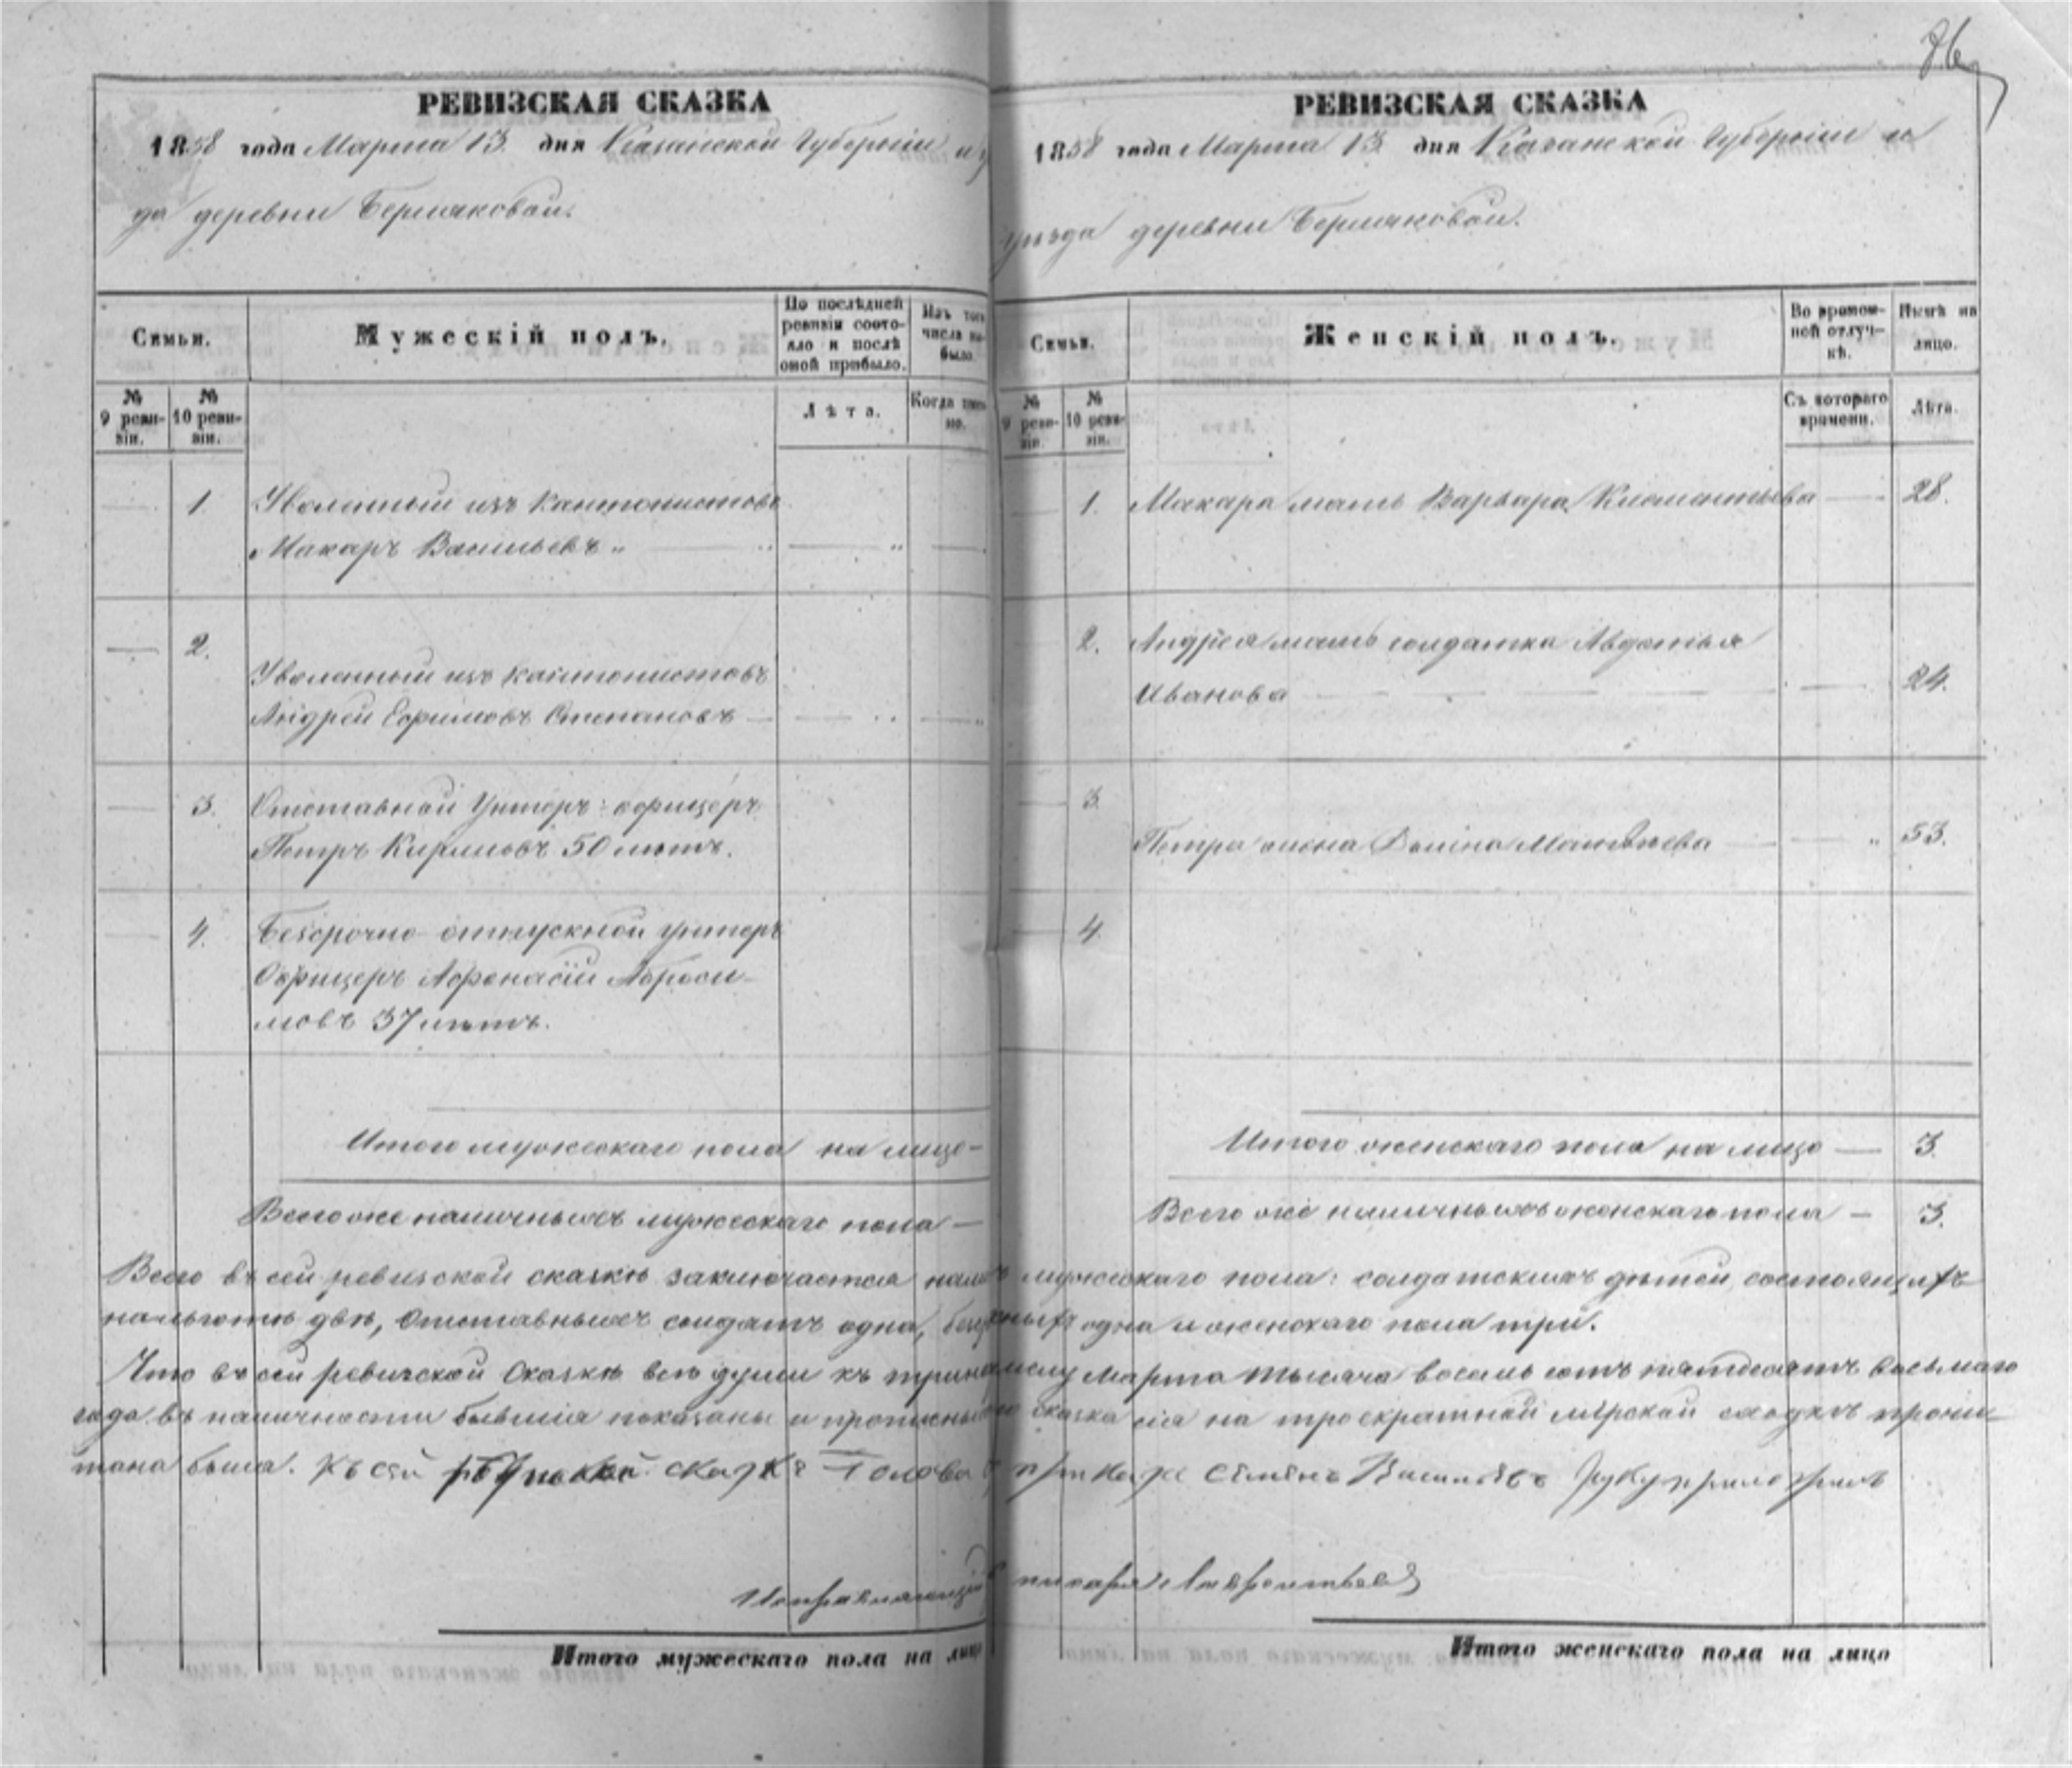 РЕВИЗСКАЯ СКАЗКА
1858 года Марта 13. дня Казанской Губерніи и у
да деревни Бермяковой.
Семьи.
Мужескій полъ.
По послѣдней ревизіи состояло и послѣ оной прибыло.
Изъ того числа выбыло.
№ 9 ревизіи.
№ 10 ревизіи.
Лѣта.
Когда именно.
1. Уволенный изъ кантонистовъ
Макаръ Васильевъ
2. Уволенный изъ кантонистовъ
Андрей Ефимовъ Степановъ
3. Отставной Унтеръ-офицеръ
Петръ Кириловъ 50 лѣтъ.
4. Безсрочно-отпускной унтеръ
Офицеръ Афонасій Аброси-
мовъ 37 лѣтъ.
Итого мужескаго пола на лицо
Всего же наличныхъ мужескаго пола
РЕВИЗСКАЯ СКАЗКА
1858 года Марта 13. дня Казанской Губерніи и
уѣзда деревни Бермяковой.
Семьи.
Женскій полъ.
Во временной отлучкѣ.
Нынѣ на лицо.
№ 9 ревизіи.
№ 10 ревизіи.
Съ котораго времени.
Лѣта.
1. Макара мать Варвара Климентьева 28.
2. Андрея мать солдатка Авдотья
Иванова 24.
3.
Петра жена Матвѣева 53.
4.
Итого женскаго пола на лицо 3.
Всего же наличныхъ женскаго пола 3.
Всего въ сей ревизской сказкѣ заключается мужескаго пола: солдатскихъ дѣтей, состоящихъ
на льготѣ двѣ, Отставныхъ солдатъ одна, одна и женскаго пола три.
Что въ сей ревизской Сказкѣ всѣ души къ Марта тысяча восемь сотъ пятьдесятъ восьмаго
года въ наличности бывшія показаны и сказка сія на троекратной мірской сходкѣ прочи-
тана была. Къ сей сказкѣ Голова приказа Семенъ Васильевъ руку приложилъ
Исправляющій писаря Лаврентьевъ
Итого мужескаго пола на лицо
Итого женскаго пола на лицо